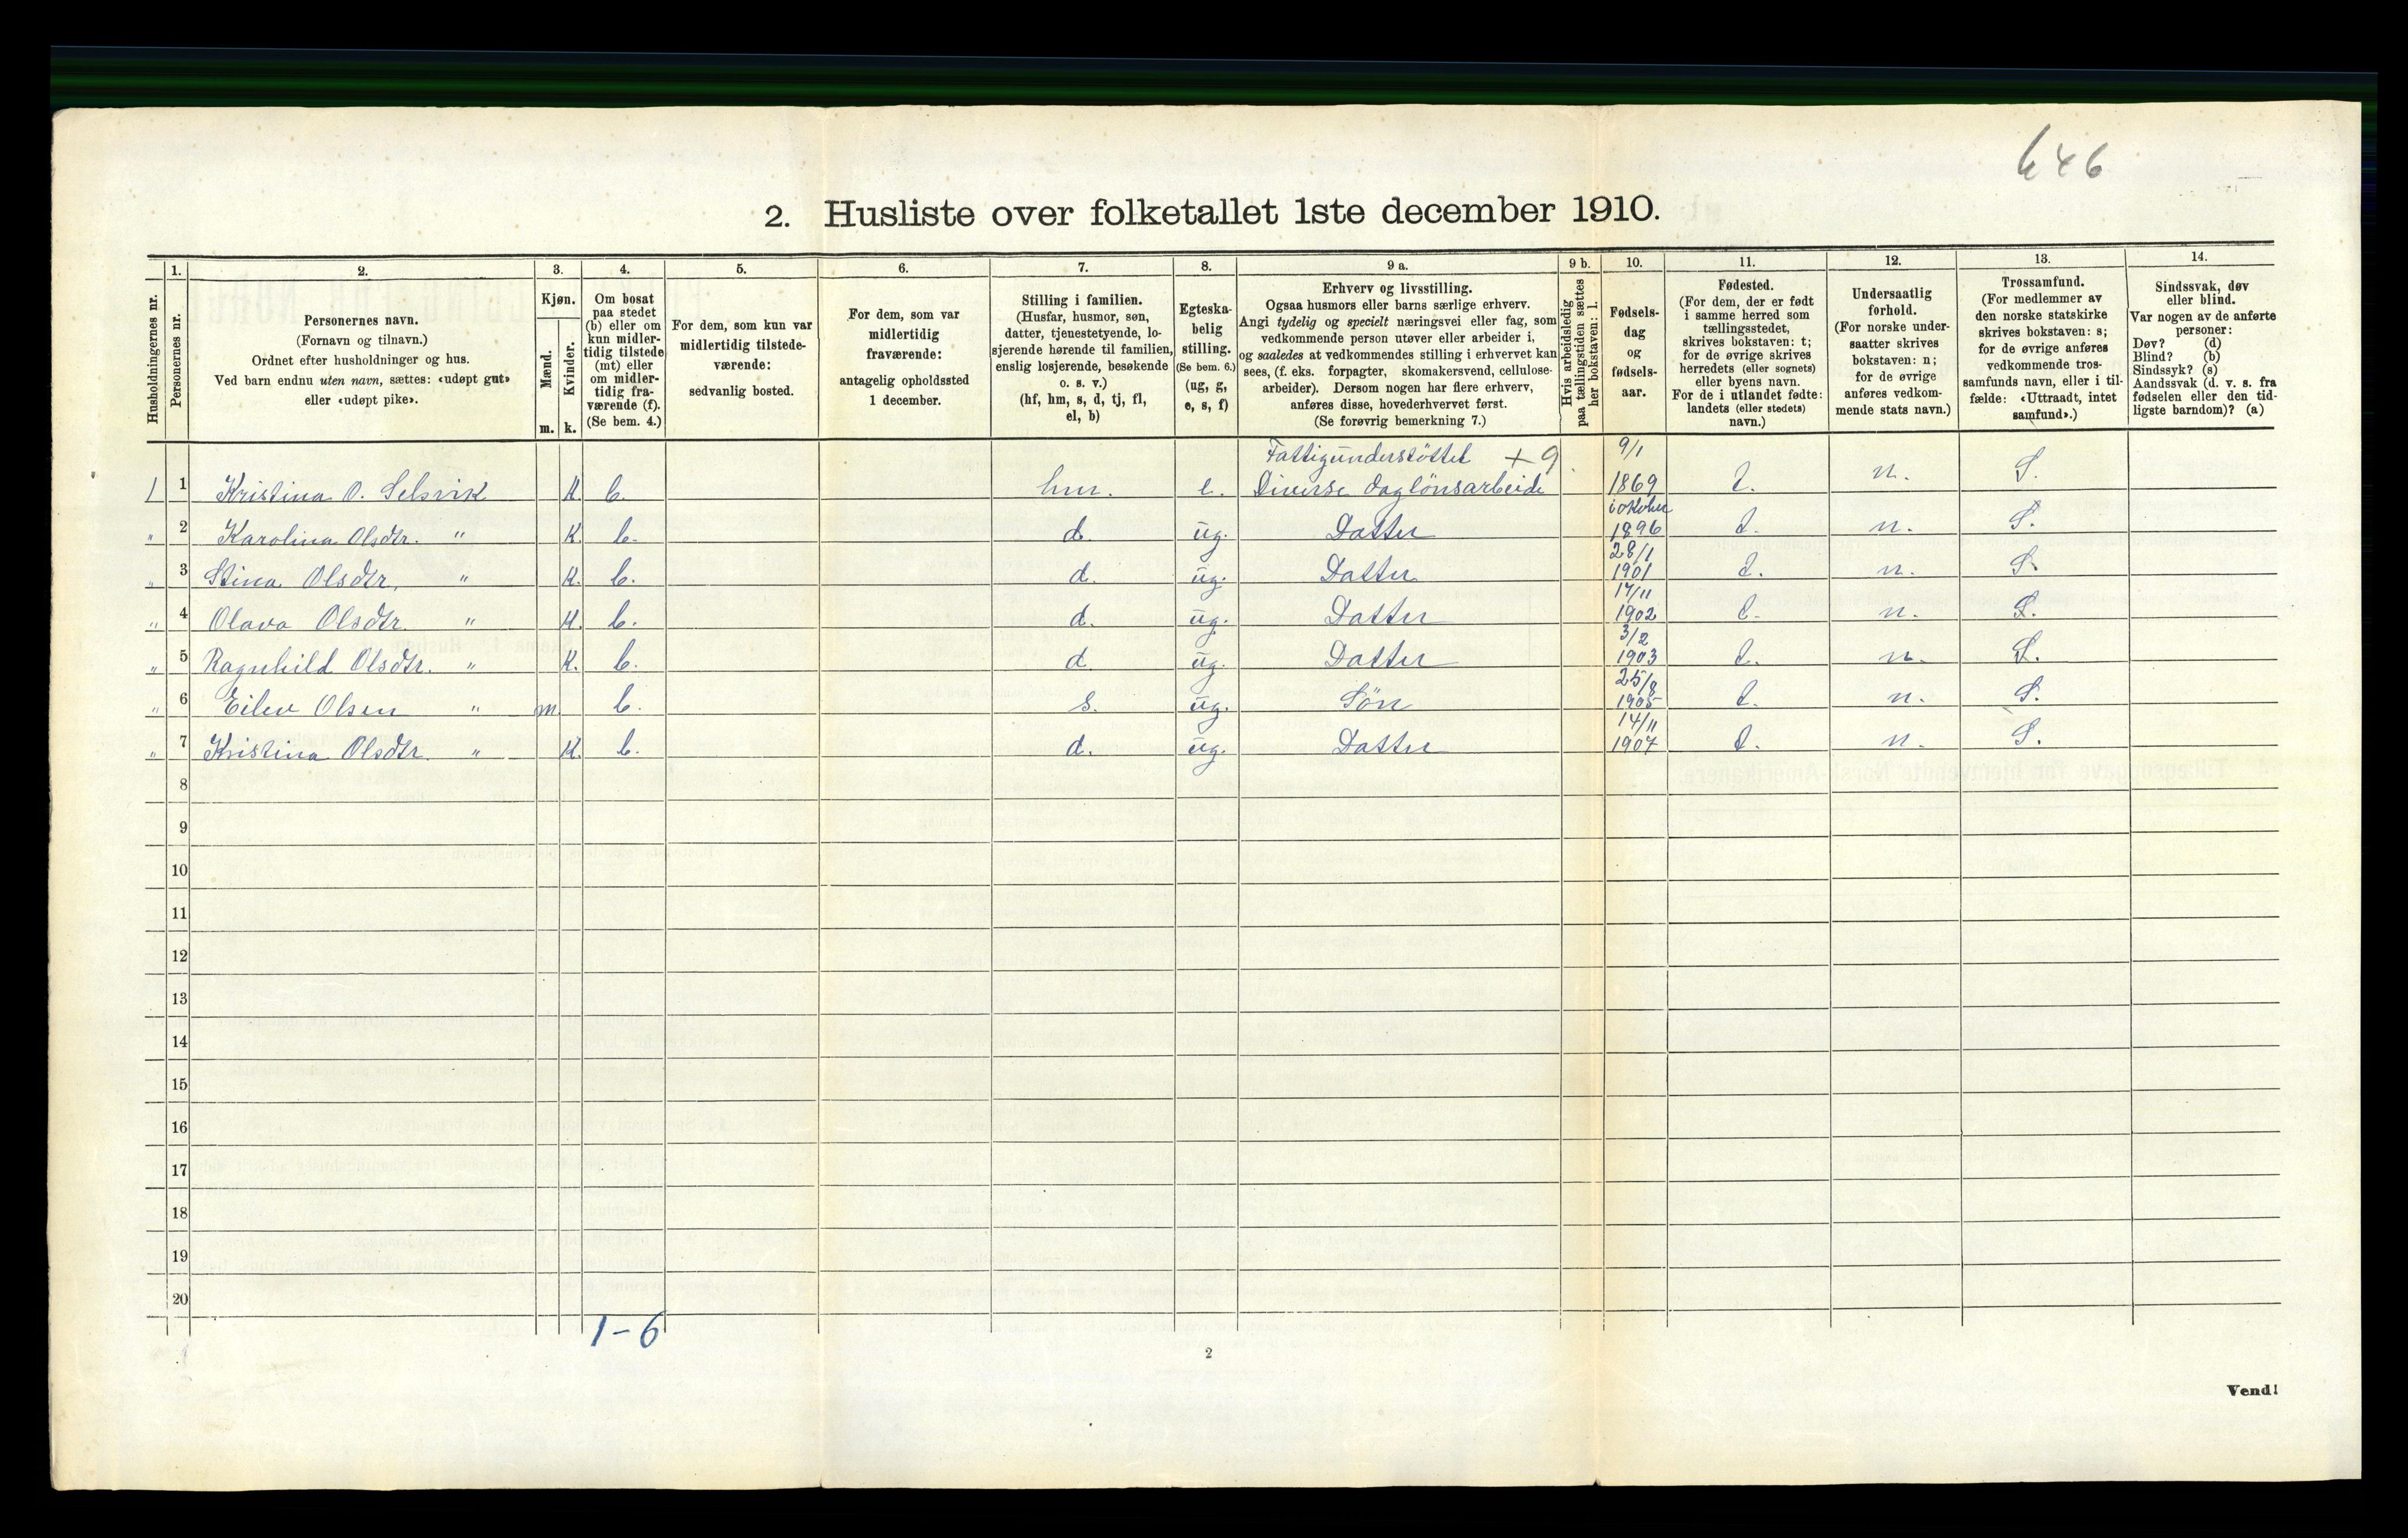 646
2. Husliste over folketallet 1ste december 1910.
Husholdningernes nr.
1.
Personernes nr.
2.
Personernes navn.
(Fornavn og tilnavn.)
Ordnet efter husholdninger og hus.
Ved barn endnu uten navn, sættes: «udøpt gut»
eller «udøpt pike».
3.
Kjøn.
Mænd.
Kvinder.
m. k.
4.
Om bosat
paa stedet
(b) eller om
kun midler-
tidig tilstede
(mt) eller
om midler-
tidig fra-
værende (f).
(Se bem. 4.)
5.
For dem, som kun var
midlertidig tilstede-
værende:
sedvanlig bosted.
6.
For dem, som var
midlertidig
fraværende:
antagelig opholdssted
1 december.
7.
Stilling i familien.
(Husfar, husmor, søn,
datter, tjenestetyende, lo-
sjerende hørende til familien,
enslig losjerende, besøkende
o. s. v.)
(hf, hm, s, d, tj, fl,
el, b)
8.
Egteska-
belig
stilling.
(Se bem. 6.)
(ug, g,
e, s, f)
9 a.
Erhverv og livsstilling.
Ogsaa husmors eller barns særlige erhverv.
Angi tydelig og specielt næringsvei eller fag, som
vedkommende person utøver eller arbeider i,
og saaledes at vedkommendes stilling i erhvervet kan
sees, (f. eks. forpagter, skomakersvend, cellulose-
arbeider). Dersom nogen har flere erhverv,
anføres disse, hovederhvervet først.
(Se forøvrig bemerkning 7.)
9 b.
Hvis arbeidsledig
paa tællingstiden sættes
her bokstaven: l.
10.
Fødsels-
dag
og
fødsels-
aar.
11.
Fødested.
(For dem, der er født
i samme herred som
tællingsstedet,
skrives bokstaven: t;
for de øvrige skrives
herredets (eller sognets)
eller byens navn.
For de i utlandet fødte:
landets (eller stedets)
navn.)
12.
Undersaatlig
forhold.
(For norske under-
saatter skrives
bokstaven: n;
for de øvrige
anføres vedkom-
mende stats navn.)
13.
Trossamfund.
(For medlemmer av
den norske statskirke
skrives bokstaven: s;
for de øvrige anføres
vedkommende tros-
samfunds navn, eller i til-
fælde: «Uttraadt, intet
samfund».)
14.
Sindssvak, døv
eller blind.
Var nogen av de anførte
personer:
Døv? (d)
Blind? (b)
Sindssyk? (s)
Aandssvak (d. v. s. fra
fødselen eller den tid-
ligste barndom)? (a)
Fattigunderstöttet + 9 9/1
1 1 Kristina O. Selsvik K b. hm. e. Diverse daglönsarbeide 1869 t. n. S.
i oktober
" 2 Karolina Olsdtr. " K. b. d. ug. Datter 1896 t. n. S.
28/1
" 3 Stina Olsdtr. " K. b. d. ug. Datter 1901 t. n. S.
17/11
" 4 Olava Olsdtr. " K. b. d. ug. Datter 1902 t. n. S.
3/2
" 5 Ragnhild Olsdtr. " K. b. d. ug. Datter 1903 t. n. S.
25/8
" 6 Eilev Olsen " m b. s. ug. Sön 1905 t. n. S.
14/11
" 7 Kristina Olsdtr. " K. b. d. ug. Datter 1907 t. n. S.
8
9
10
11
12
13
14
15
16
17
18
19
20
1-6
2
Vend!